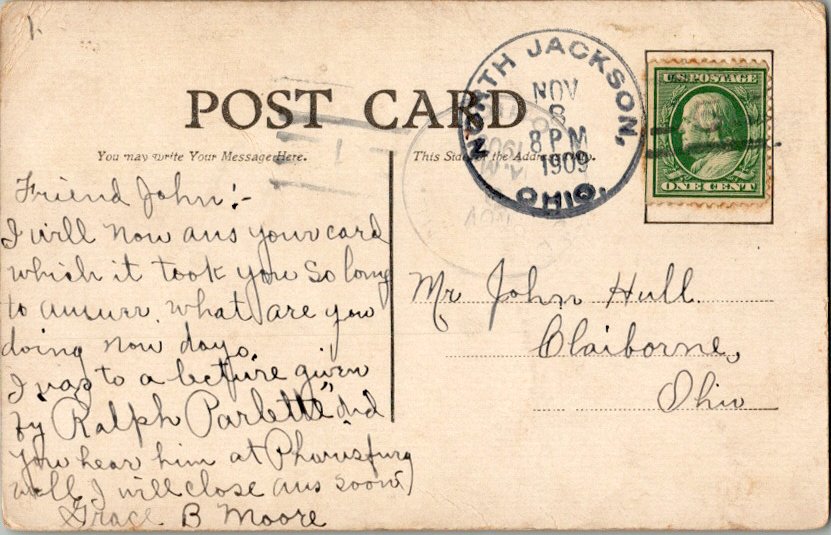 POST CARD
You may write Your Message Here.
This Side of the Address Only.
NORTH JACKSON,
NOV
8
8 PM
1909
OHIO.
U.S. POSTAGE
ONE CENT
Friend John:-
I will now ans your card
which it took you so long
to answer. what are you
doing now days.
I was to a lecture given
by Ralph Parlette" did
you hear him at
well I will close ans soon)
Grace B Moore
Mr John Hull.
Claiborne,
Ohio